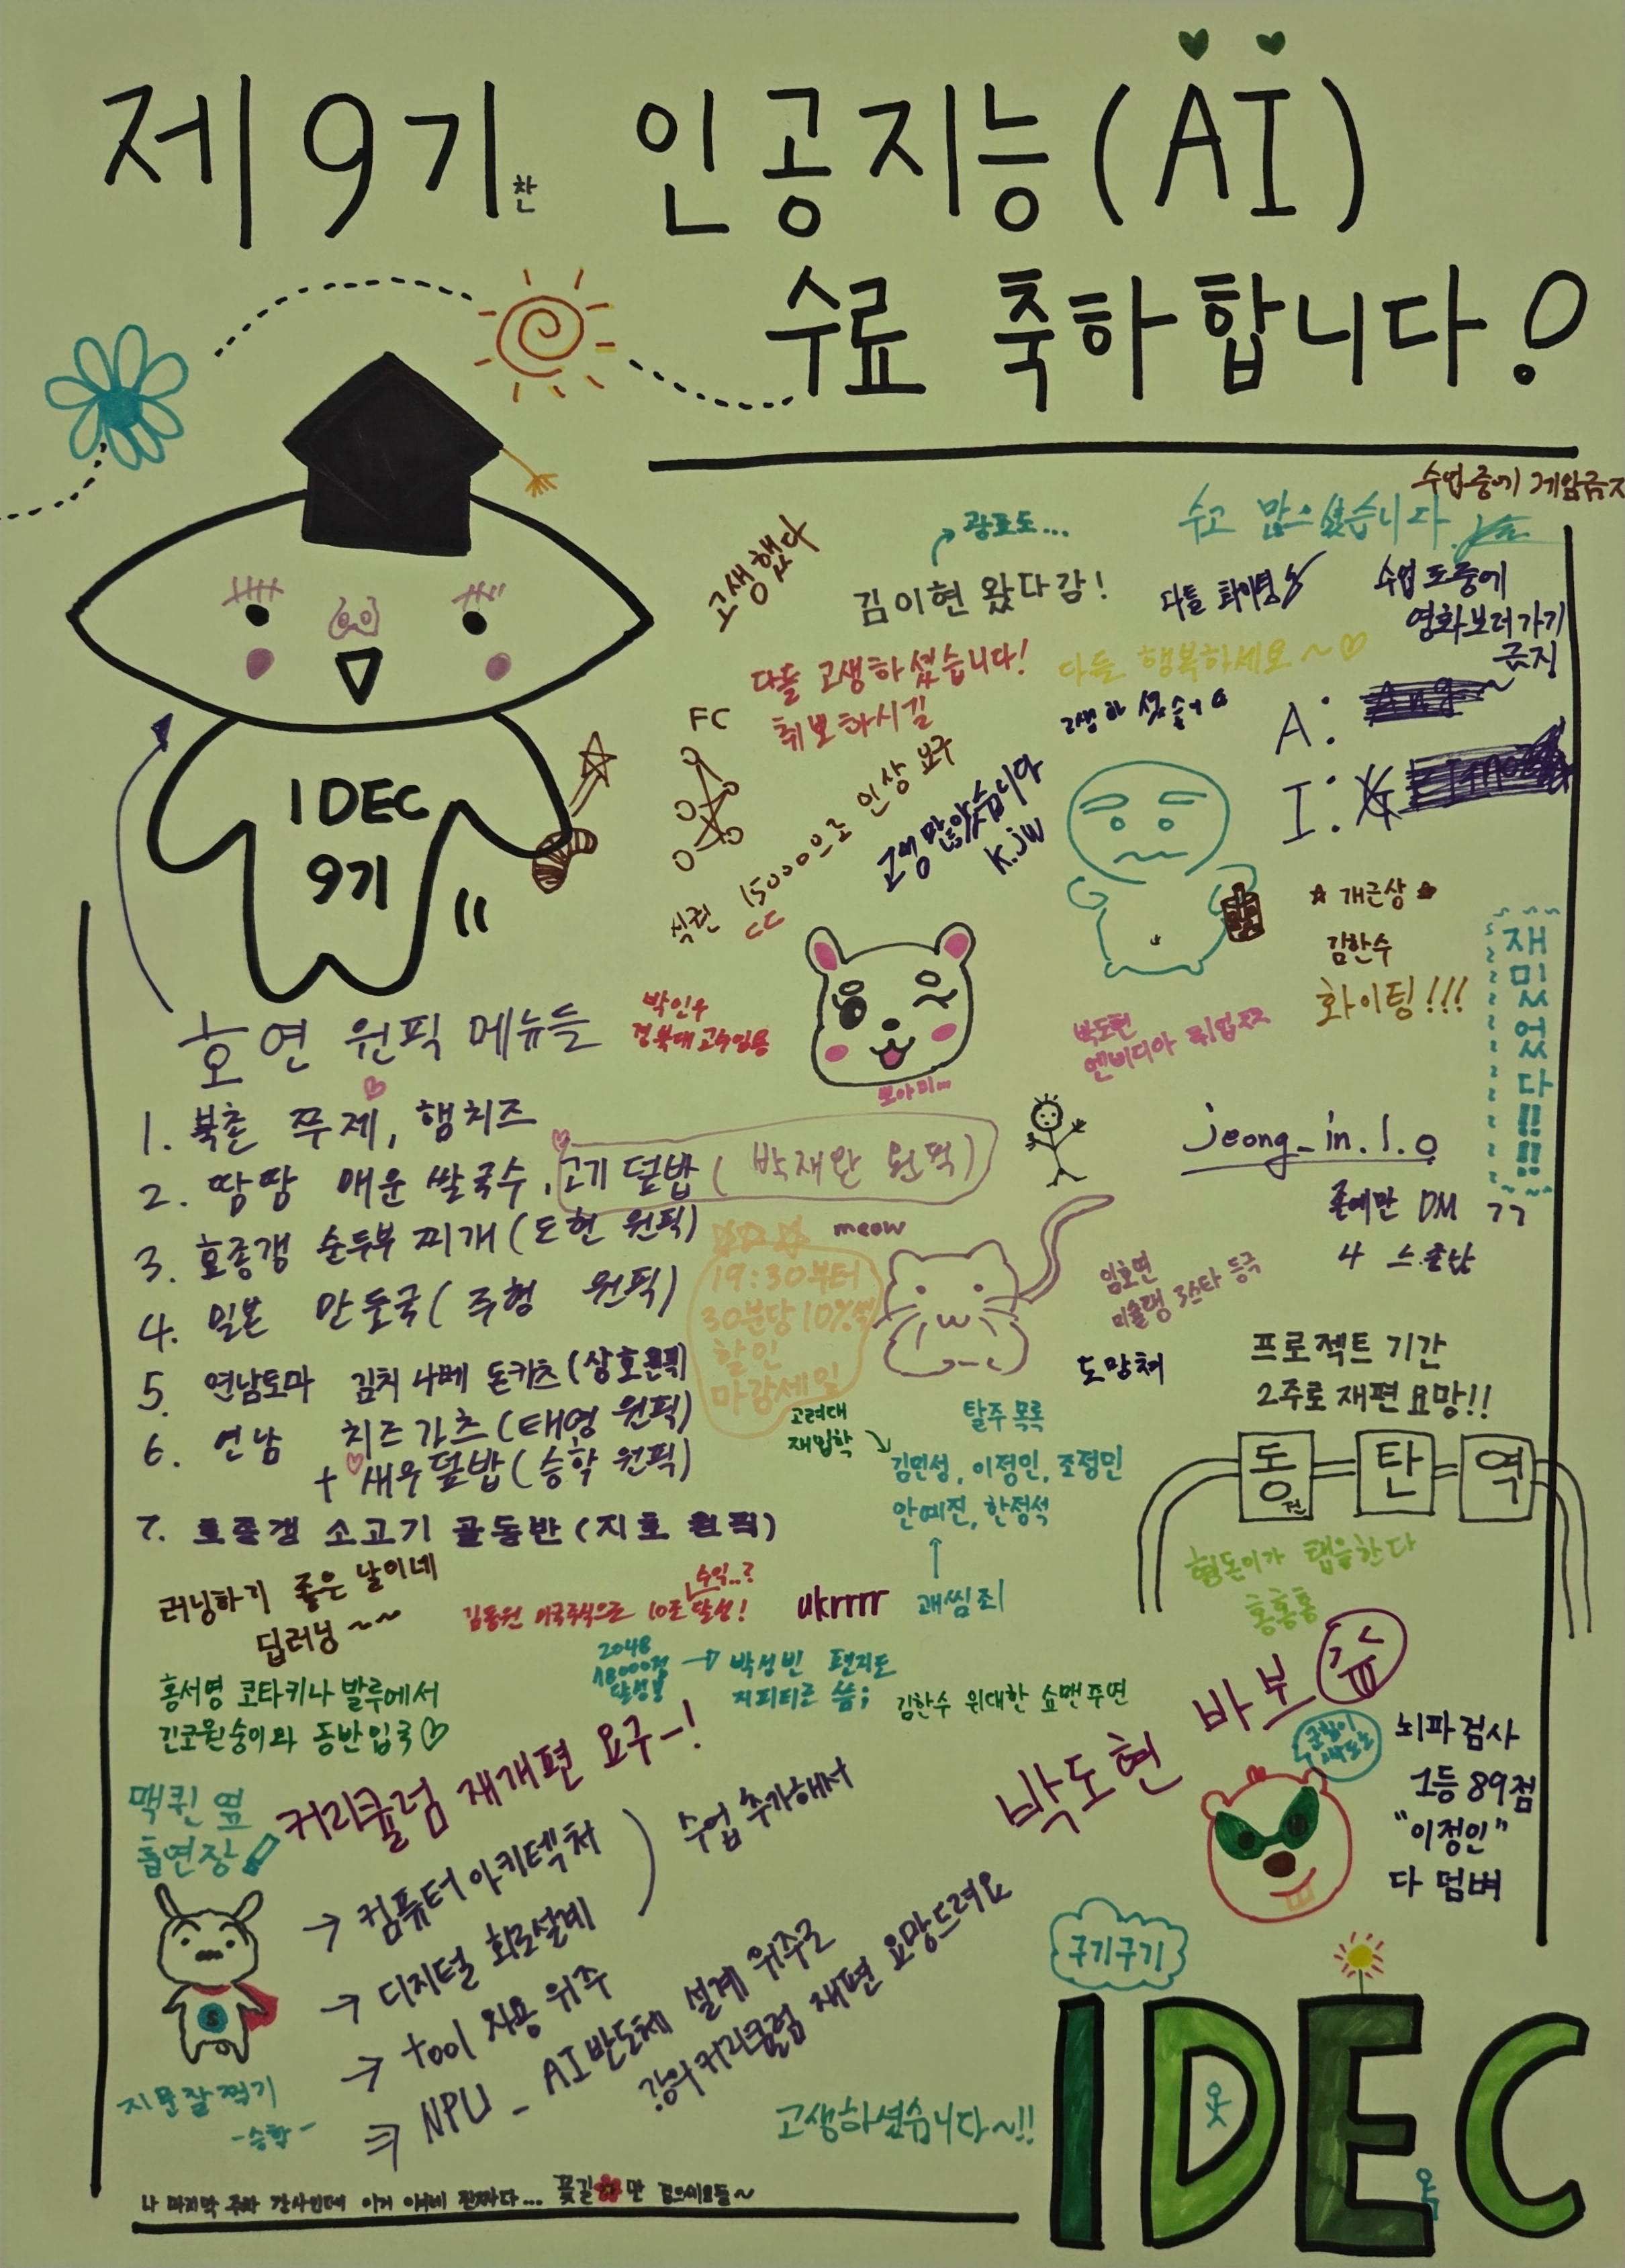 제9기찬 인공지능(AI)
수료 축하합니다!
수업중에 게임금지
수고 많으셨습니다.
광포도...
고생했다
김이현 왔다감!
다들 화이팅
수업 도중에
영화보러가기
금지
다들 고생하셨습니다!
취뽀하시길
다들 행복하세요~♡
고생하셨습니다
A:
I:
FC
식권 15000으로 인상 요구
고생많았습니다
K.JW
IDEC
9기
☆개근상☆
김한수
화이팅!!!
재밌었다!!!!
박인수
경북대 교수임용
박도현
엔비디아 취업쯔
뽀아미...
호연 원픽 메뉴들
1. 북촌 쭈제, 햄치즈
2. 땀땀 매운 쌀국수, 고기 덮밥 (박재완 원픽)
3. 호종갱 순두부 찌개 (도현 원픽)
4. 일본 만둣국 (주형 원픽)
5. 연남토마 김치 나베 돈카츠 (상호원픽)
6. 연남 치즈가츠 (태영 원픽)
+ 새우덮밥 (승학 원픽)
7. 호종갱 소고기 골동반 (지호 원픽)
jeong_in.1.0
존예만 DM ㄱㄱ
meow
19:30부터
30분당 10%씩
할인
마감세일
임호연
미슐랭 3스타 등극
도망쳐
프로젝트 기간
2주로 재편 요망!!
고려대
재입학
탈주 목록
김민성, 이정인, 조정민
안예진, 한정석
괘씸죄
동탄역
힘돈이가 탭을한다
홍홍홍
러닝하기 좋은 날이네
딥러닝~~
수익..?
김동원 미국주식으로 10조 달성!
ukrrrr
2048
18000점
달성!
박성빈 편지도
지피티로 씀;
김한수 위대한 쇼맨 주연
홍서영 코타키나발루에서
긴코원숭이와 동반입국♡
박도현 바보
뇌파검사
1등 89점
"이정인"
다 덤벼
맥퀸 옆
흡연장!
커리큘럼 재개편 요구-!
→ 컴퓨터 아키텍처
→ 디지털 회로설계
수업 추가해서
→ tool 사용 위주
⇒ NPU - AI반도체 설계 위주로
강의커리큘럼 재편 요망드려요
S
지문잘찍기
-승학-
구기구기
고생하셨습니다~!!
IDEC